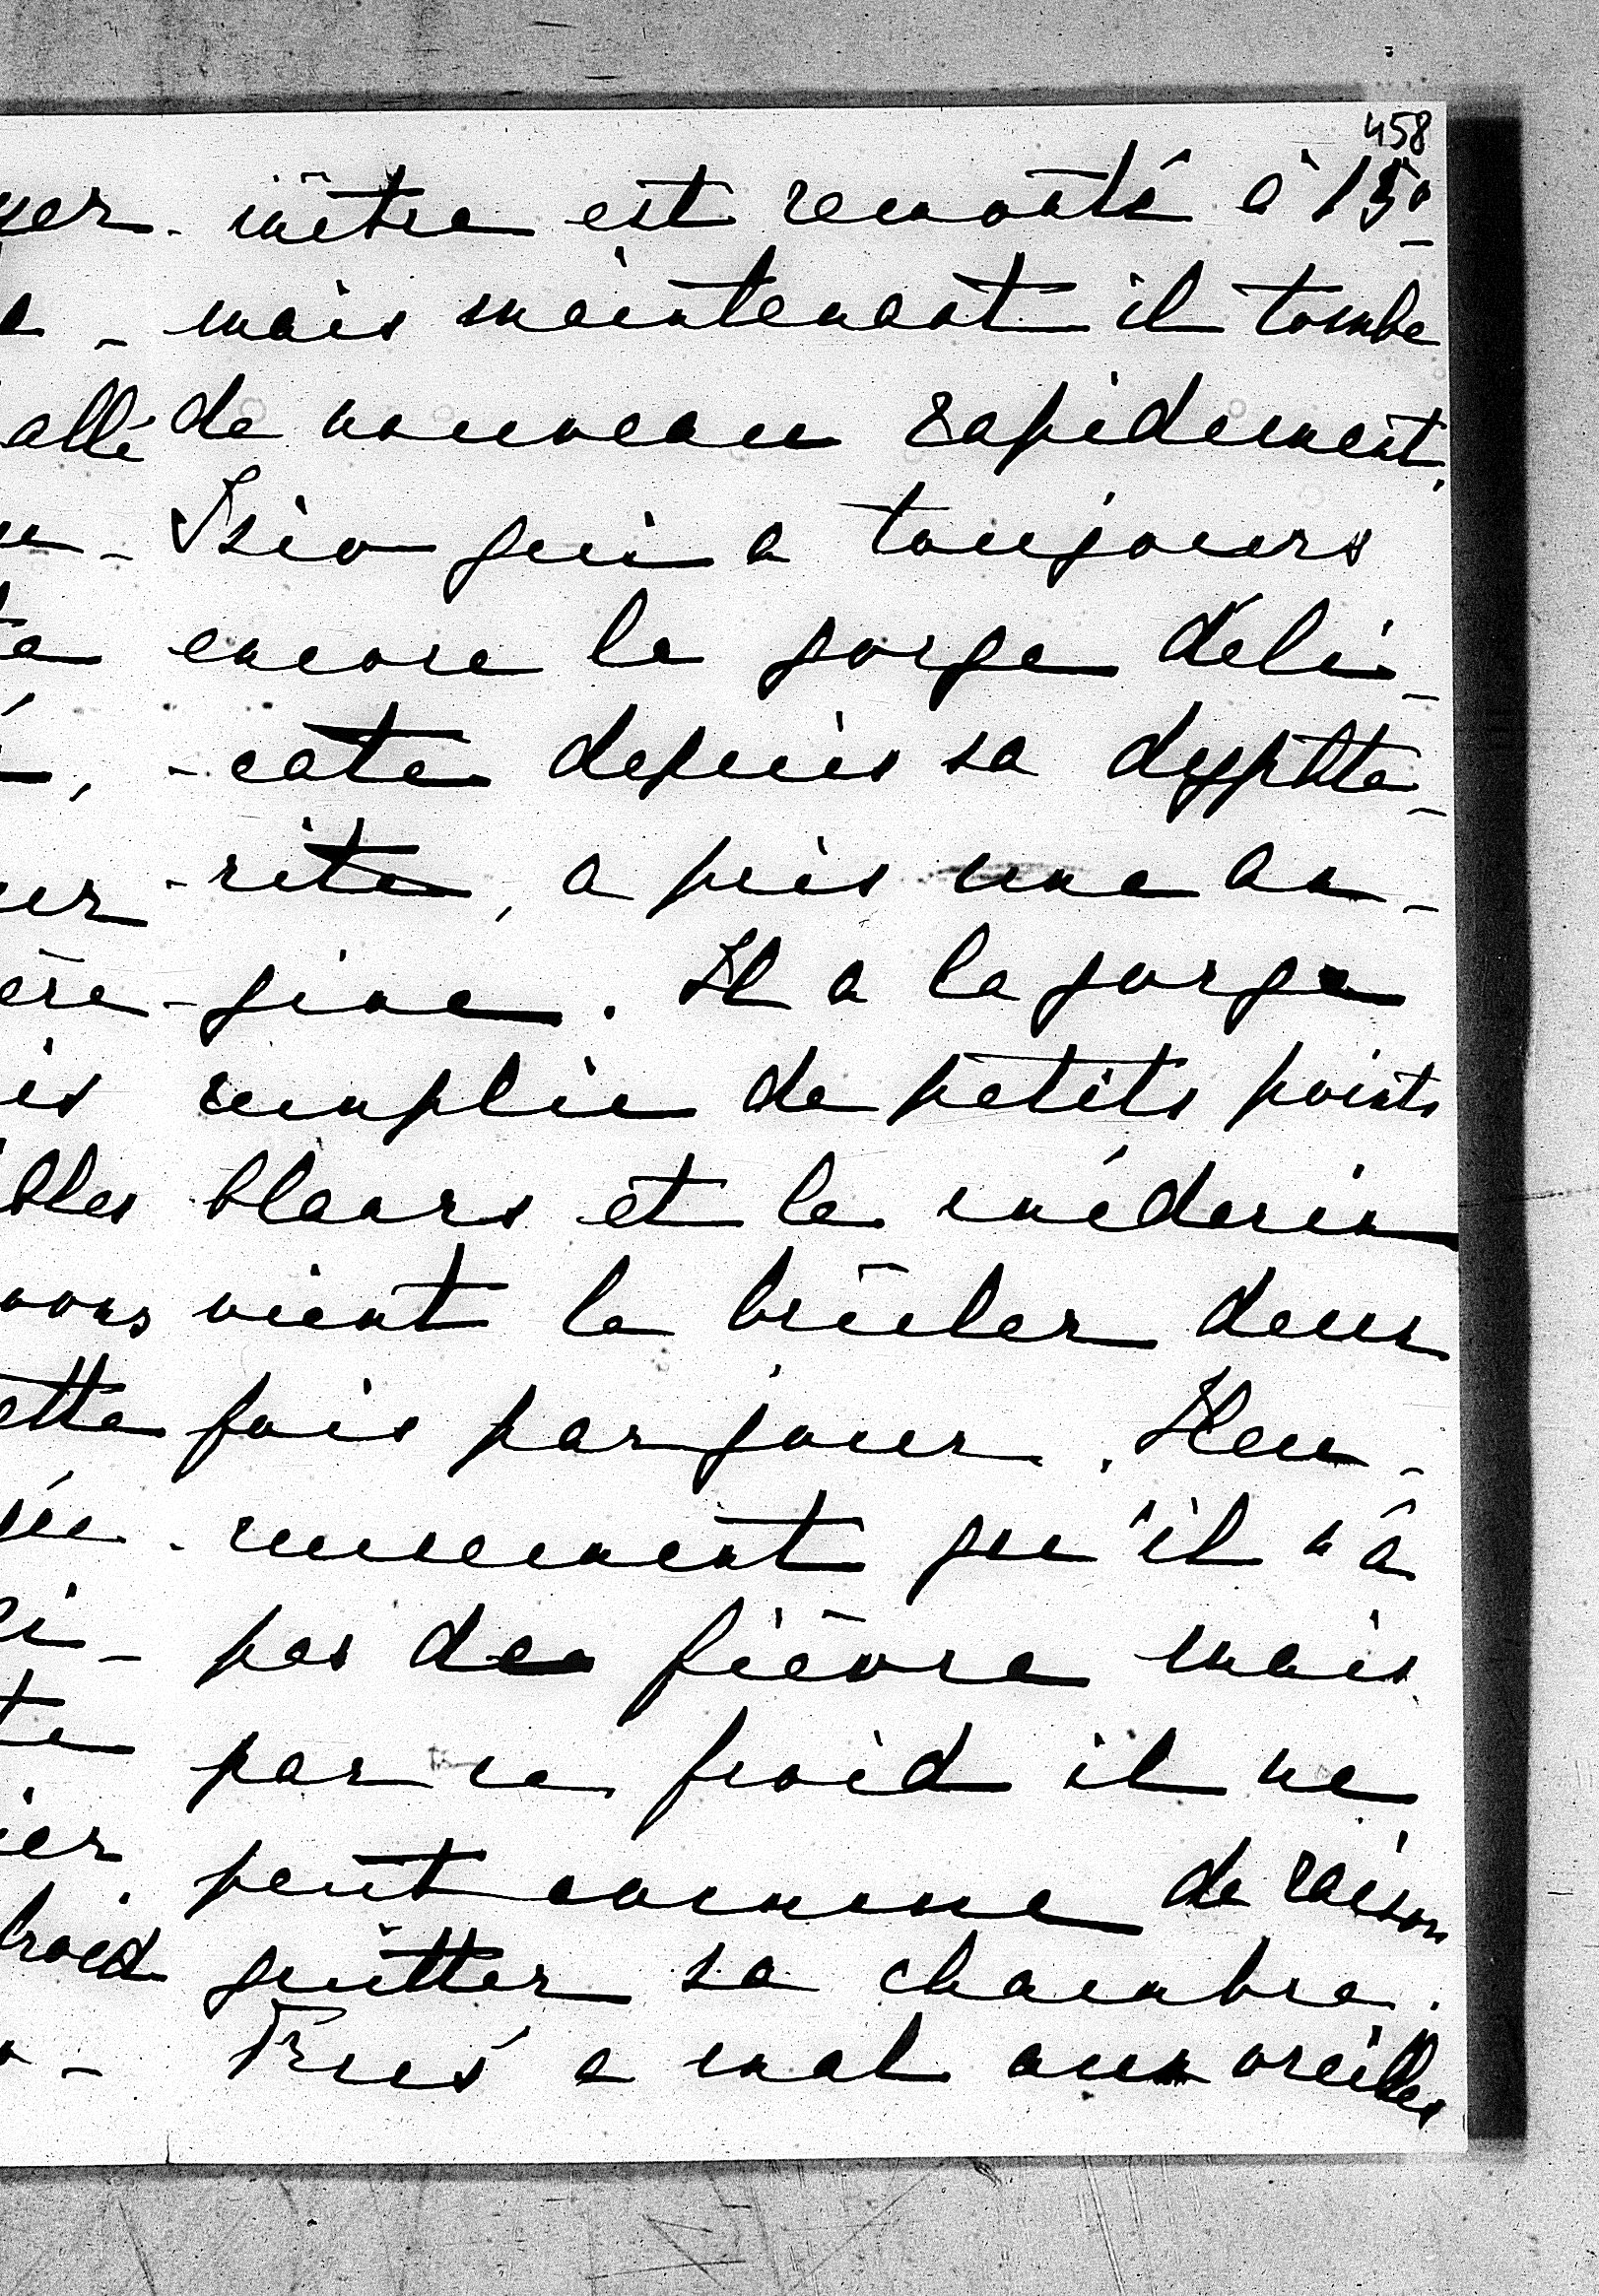 458
-mètre est remonté à 15°
mais maintenant il tombe
de nouveau rapidement.
qui a toujours
encore la gorge déli-
-cate depuis sa dyphte-
-rite, a pris une an-
-gine. Il a la gorge
remplie de petits points
blancs et le médecin
vient la brûler deux
fois par jour. Heu-
-reusement qu'il n'a
pas de fièvre mais
par ce froid il ne
peut comme de raison
quitter sa chambre.
a mal aux oreilles